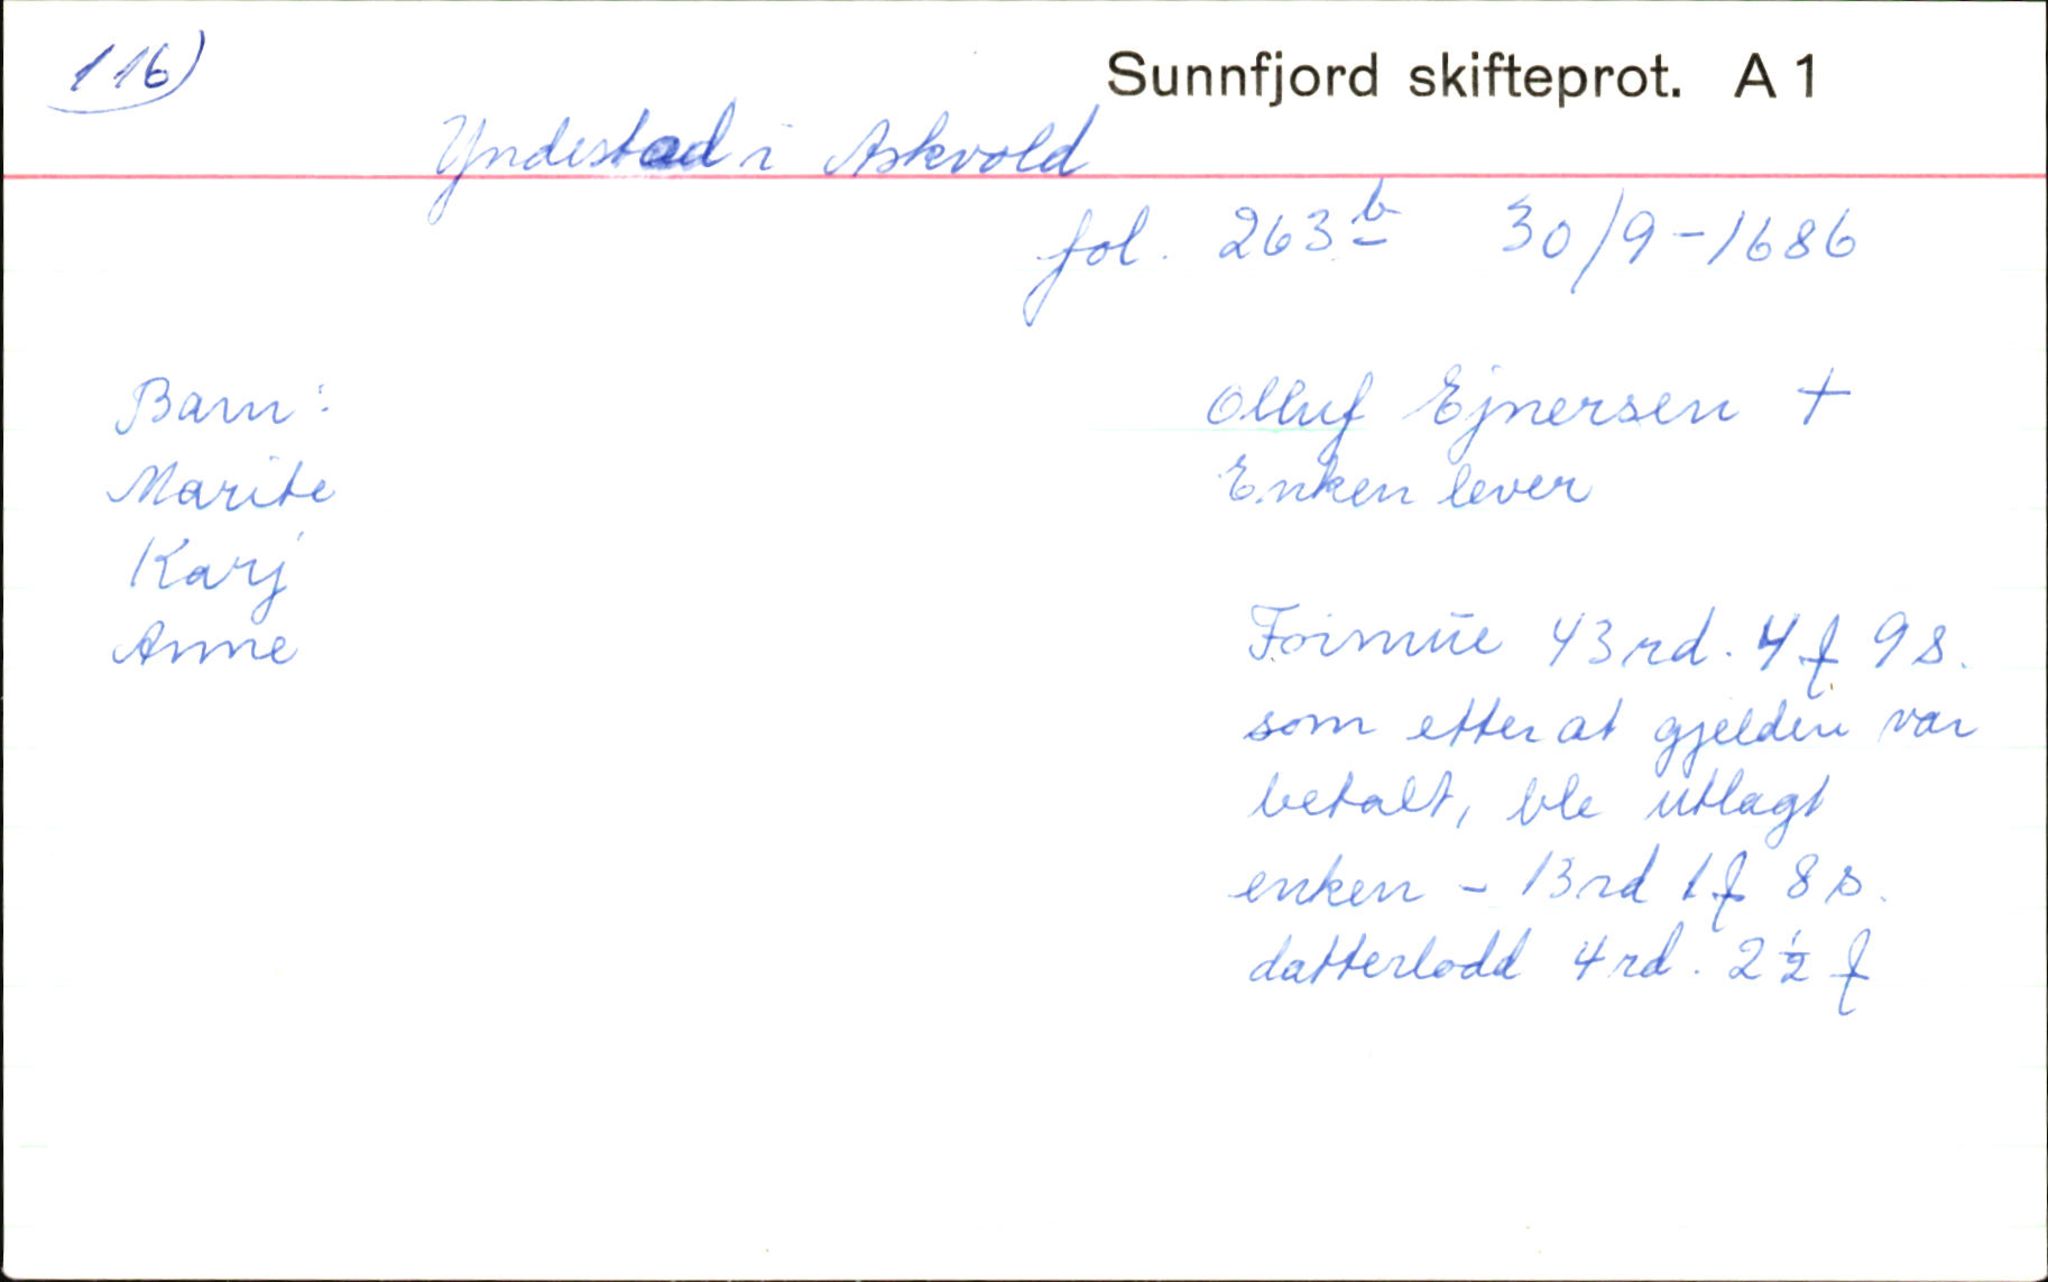 116)
Sunnfjord skifteprot. A 1
Yndestad i Askvold
fol. 263 b 30/9-1686
Barn:
Marite
Karj
Anne
Olluf Ejnersen +
Enken lever
Formue 43 rd. 4 f 9 s.
som etter at gjelden var
betalt, ble utlagt
enken - 13 rd 1 f 8 s.
datterlodd 4 rd. 2 ½ f